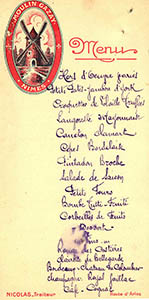 MOULIN GAZAY
NIMES
Menu
Hors d'œuvre variés
Petits Pâtés Jambon d'York
Croquettes de Volaille Truffées
Langouste Mayonnaise
Caneton
Cèpes Bordelaise
Pintadon Broche
Salade de Saison
Petits Fours
Bombe Tutti-Frutti
Corbeilles de Fruits
Dessert
Vins
Rouge des Costières
Clairette de Bellegarde
Bordeaux
Champagne Royal
Café - Cognac
NICOLAS, Traiteur
Route d'Arles